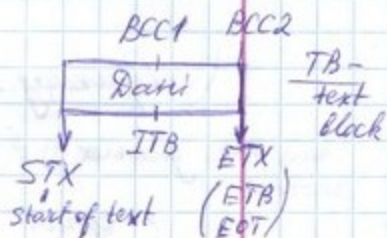 BCC1 BCC2
Dani
TB -
text
block
ITB
STX
start of text
ETX
(ETB
EOT)